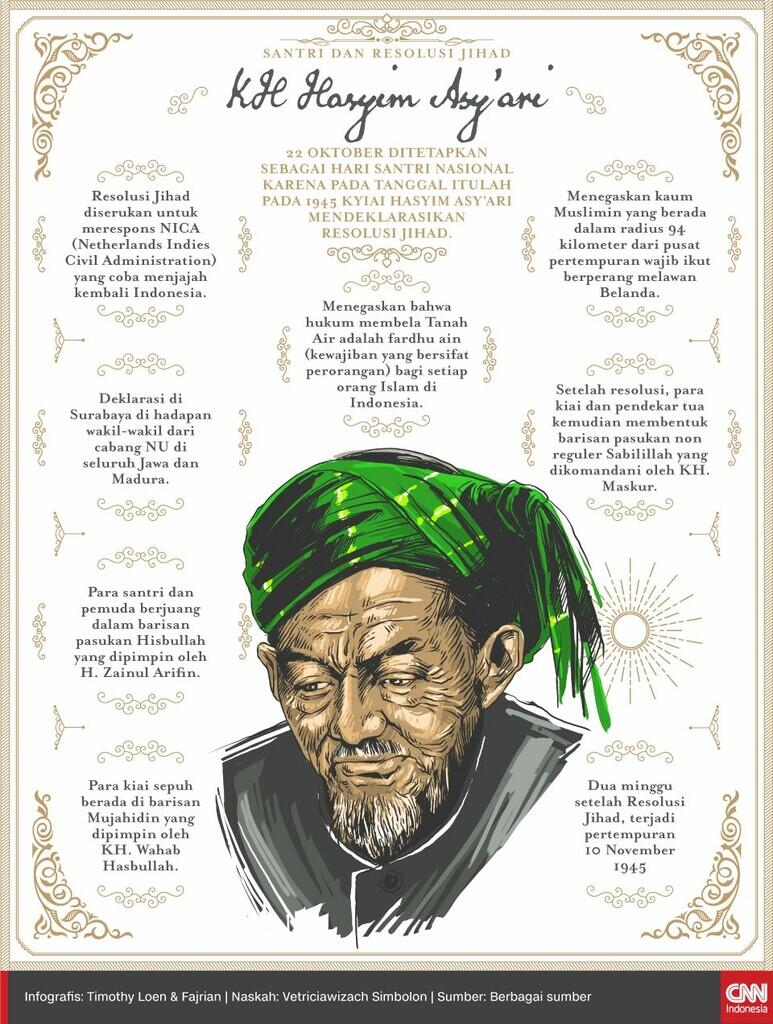 SANTRI DAN RESOLUSI JIHAD
KH Hasyim Asy'ari
22 OKTOBER DITETAPKAN
SEBAGAI HARI SANTRI NASIONAL
KARENA PADA TANGGAL ITULAH
PADA 1945 KYIAI HASYIM ASY'ARI
MENDEKLARASIKAN
RESOLUSI JIHAD.
Resolusi Jihad
diserukan untuk
merespons NICA
(Netherlands Indies
Civil Administration)
yang coba menjajah
kembali Indonesia.
Menegaskan kaum
Muslimin yang berada
dalam radius 94
kilometer dari pusat
pertempuran wajib ikut
berperang melawan
Belanda.
Menegaskan bahwa
hukum membela Tanah
Air adalah fardhu ain
(kewajiban yang bersifat
perorangan) bagi setiap
orang Islam di
Indonesia.
Deklarasi di
Surabaya di hadapan
wakil-wakil dari
cabang NU di
seluruh Jawa dan
Madura.
Setelah resolusi, para
kiai dan pendekar tua
kemudian membentuk
barisan pasukan non
reguler Sabilillah yang
dikomandani oleh KH.
Maskur.
Para santri dan
pemuda berjuang
dalam barisan
pasukan Hisbullah
yang dipimpin oleh
H. Zainul Arifin.
Para kiai sepuh
berada di barisan
Mujahidin yang
dipimpin oleh
KH. Wahab
Hasbullah.
Dua minggu
setelah Resolusi
Jihad, terjadi
pertempuran
10 November
1945
Infografis: Timothy Loen & Fajrian | Naskah: Vetriciawizach Simbolon | Sumber: Berbagai sumber
CNN
Indonesia